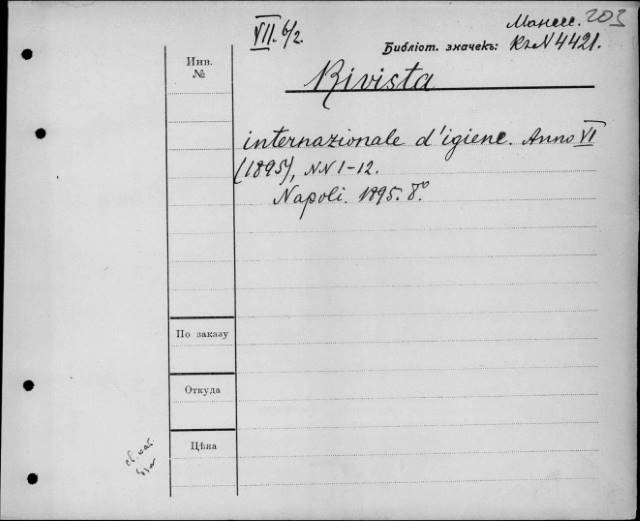 VII. 6/2.
203
Библіот. значекъ: Кг N 4421.
Инв.
№
Rivista
internazionale d'igiene. Anno VI
(1895), NN 1-12.
Napoli. 1895. 8°.
По заказу
Откуда
Цѣна